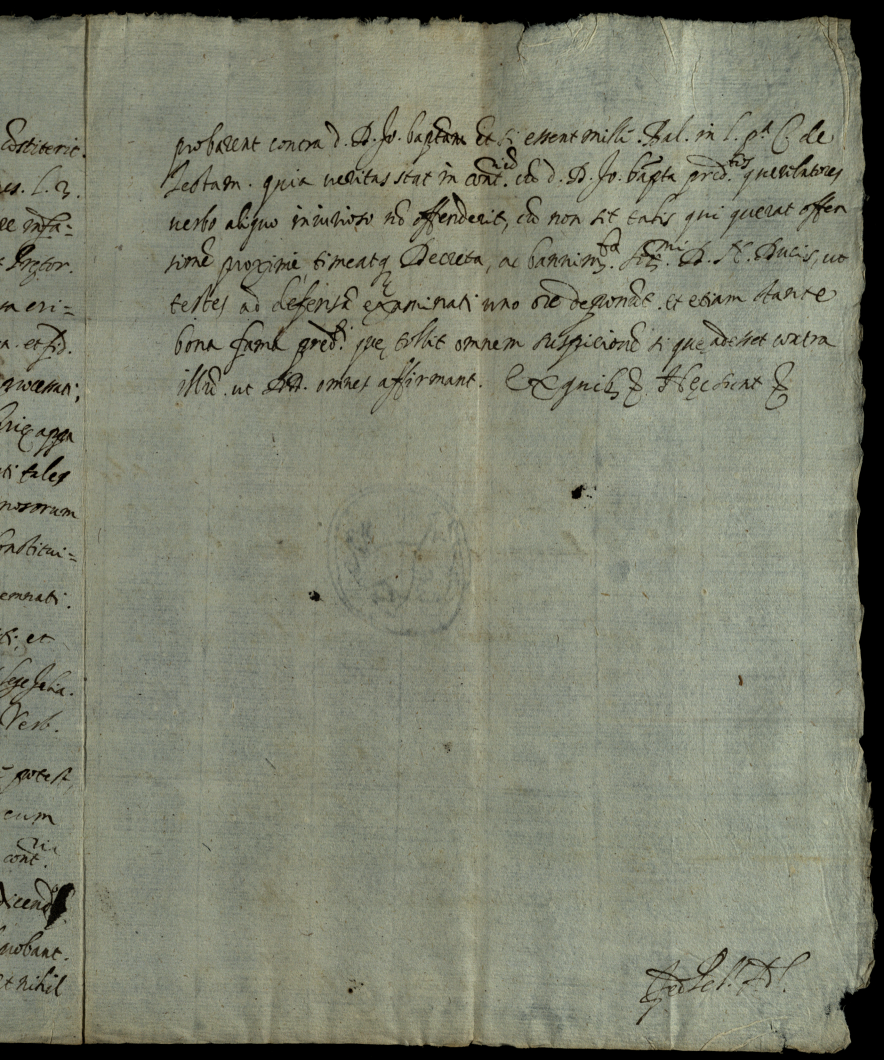 constiterit.
es. l. 2.
ee infa=
t Pretor.
sa cri=
a. et sid.
processati;
ti tales
nosorum
onstitui=
emnati.
ti; et
lege Julia.
Verb.
potest,
eum
cont.
dicend
probant.
et nihil
probarent contra d. D. Jo. baptam et si essent mille. Bal. in l. pa. C. de
testam. quia veritas stat in cont.um cu d. D. Jo. bapta pred.tos querelatores
verbo aliquo iniurioso no offenderit, cu non sit talis qui querat offen
sione proxime timeatq Decreta, ac bannim.ta Ser.mi D. N. Ducis, ut
testes ad defensa examinati uno ore deponut. et etiam stante
bona fama pred.i que tollit omnem suspicione si que adesset contra
illu. ut DD. omnes affirmant. Ex quib9 &. Hec dicut &